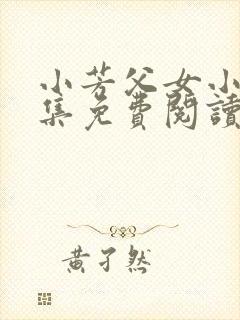 小芳父女小
集免費閱讀
黃孑然